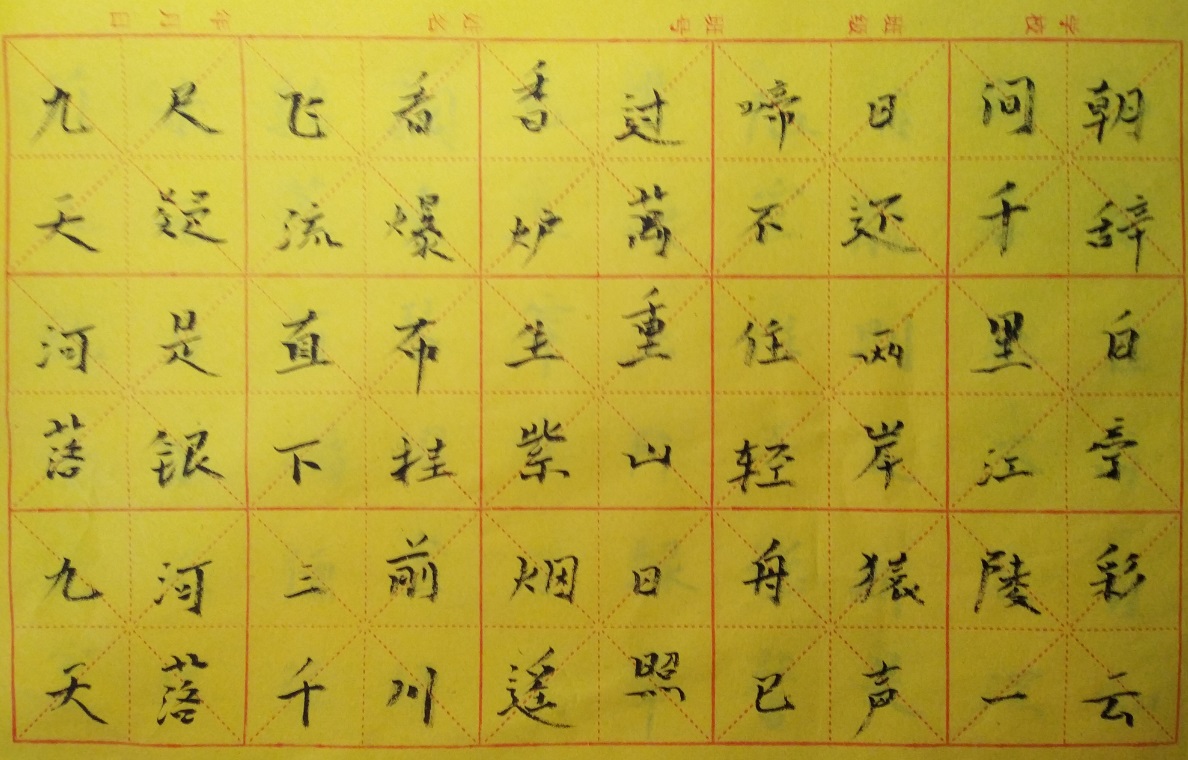 学校 班级 班号 姓名 年月日
朝辞白亭彩云
间千里江陵一
日还两岸猿声
啼不住轻舟已
过萬重山日照
香炉生紫烟遥
看爆布挂前川
飞流直下三千
尺疑是银河落
九天河落九天